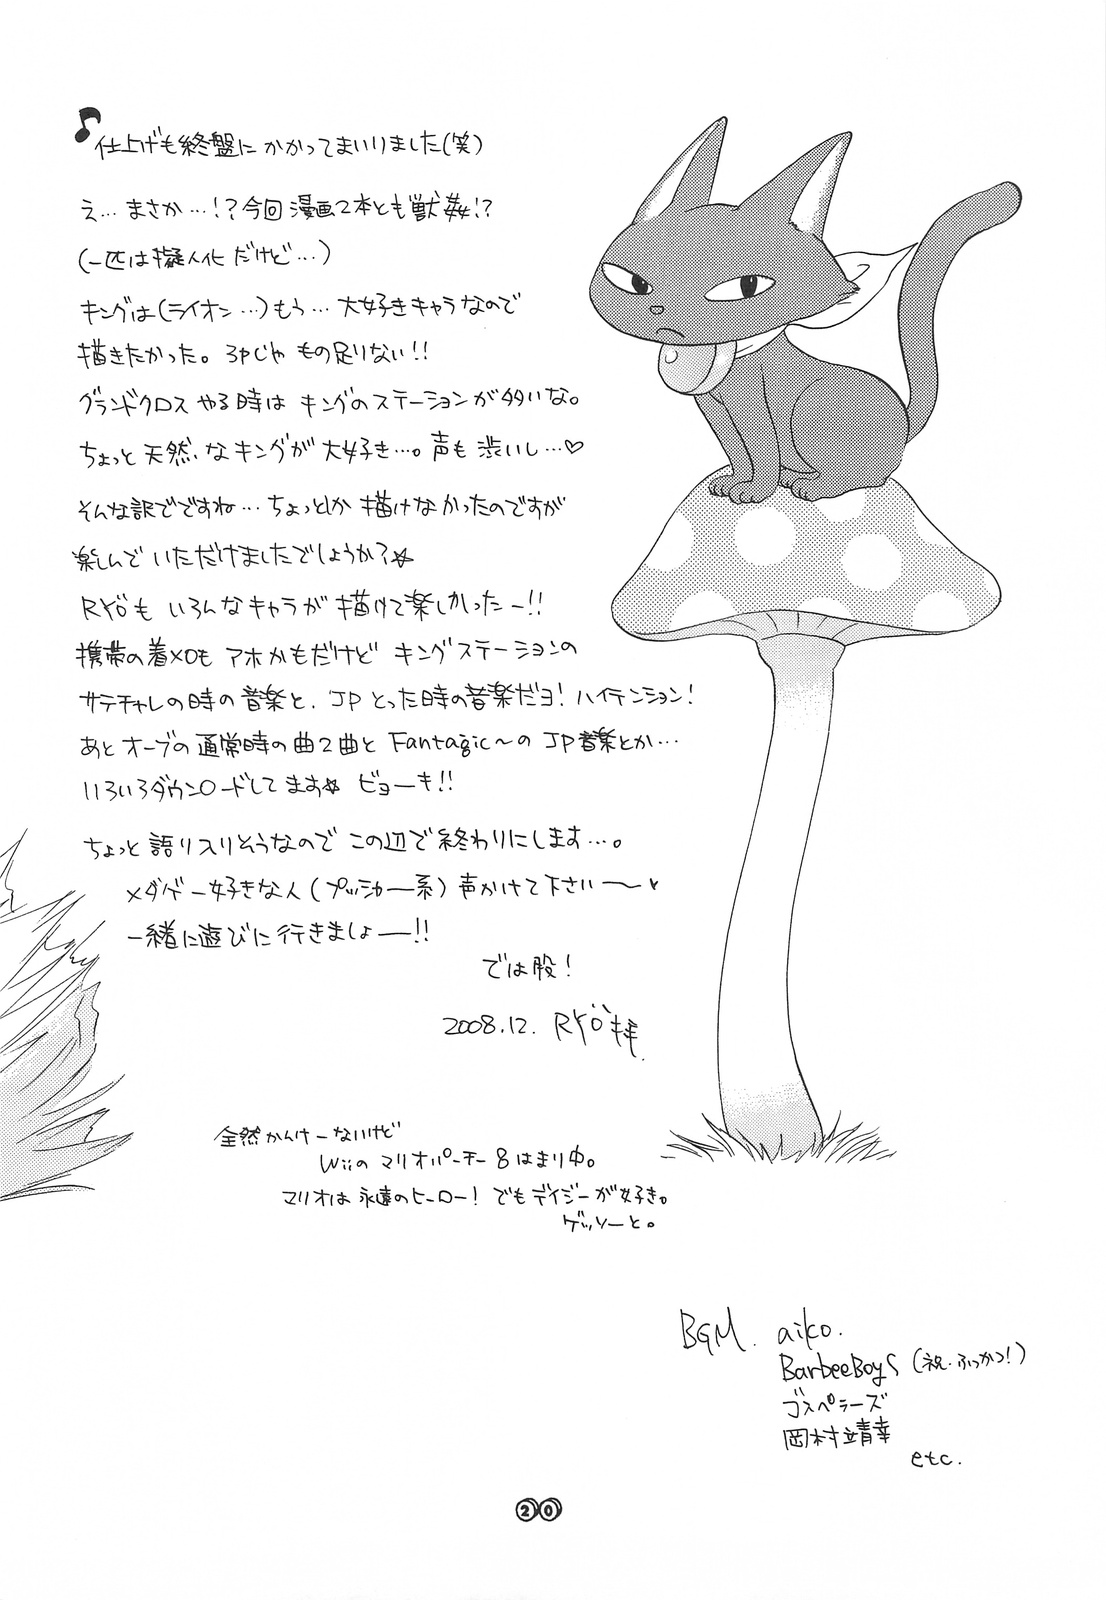 ♪仕上げも終盤にかかってまいりました(笑)
え…まさか…!?今回漫画2本とも獣姦!?
(一匹は擬人化だけど…)
キングは(ライオン…)もう…大好きキャラなので
描きたかった。3Pじゃもの足りない!!
グランドクロスやる時はキングのステーションが多いな。
ちょっと天然なキングが大好き…。声も渋いし…♡
そんな訳でですね…ちょっとしか描けなかったのですが
楽しんでいただけましたでしょうか?☆
RYÖもいろんなキャラが描けて楽しかったー!!
携帯の着メロもアホかもだけどキングステーションの
サテチャレの時の音楽と、JPとった時の音楽だヨ!ハイテンション!
あとオーブの通常時の曲2曲とFantagic〜のJP音楽とか…
いろいろダウンロードしてます☆ビョーキ!!
ちょっと語り入りそうなのでこの辺で終わりにします…。
メダゲー好きな人(プッシャー系)声かけて下さい〜
一緒に遊びに行きましょー!!
では股!
2008.12. RYÖ拝
全然かんけーないけど
Wiiのマリオパーチー8はまり中。
マリオは永遠のヒーロー!でもデイジーが好き。
ゲッソーと。
BGM. aiko.
BarbeeBoys(祝・ふっかつ!)
ゴスペラーズ
岡村靖幸
etc.
20